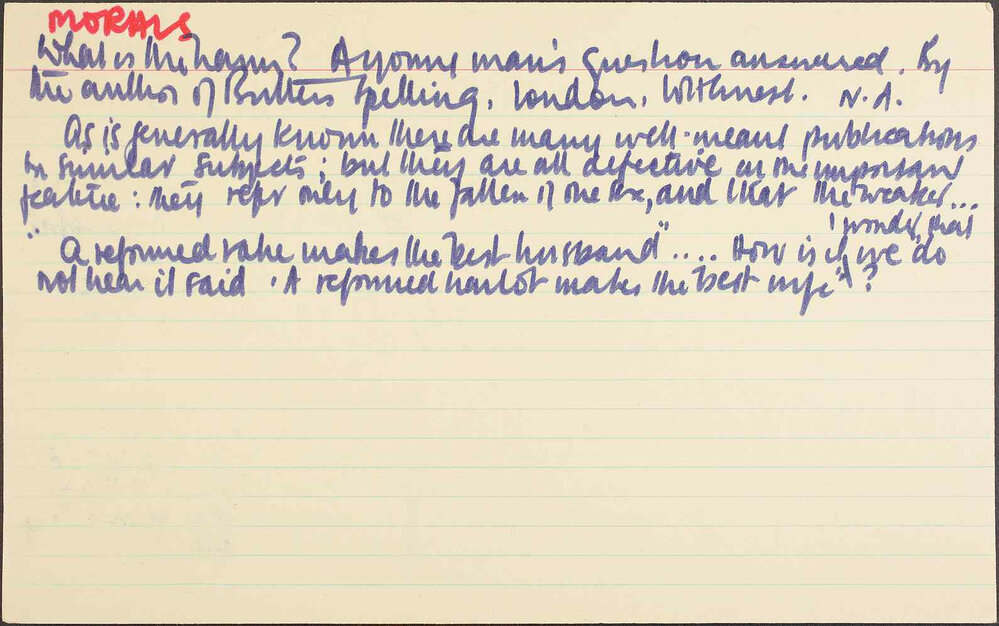 MORALS
What is the harm? A young man's question answered. By
the author of Butters Spelling, London, Withnest. N.D.
As is generally known there are many well-meant publications
on similar subjects; but they are all defective in one important
feature: they refer only to the fallen of one sex, and that the weaker...
"A reformed rake makes the best husband".... How is it, I wonder, that we do
not hear it said 'A reformed harlot makes the best wife'?